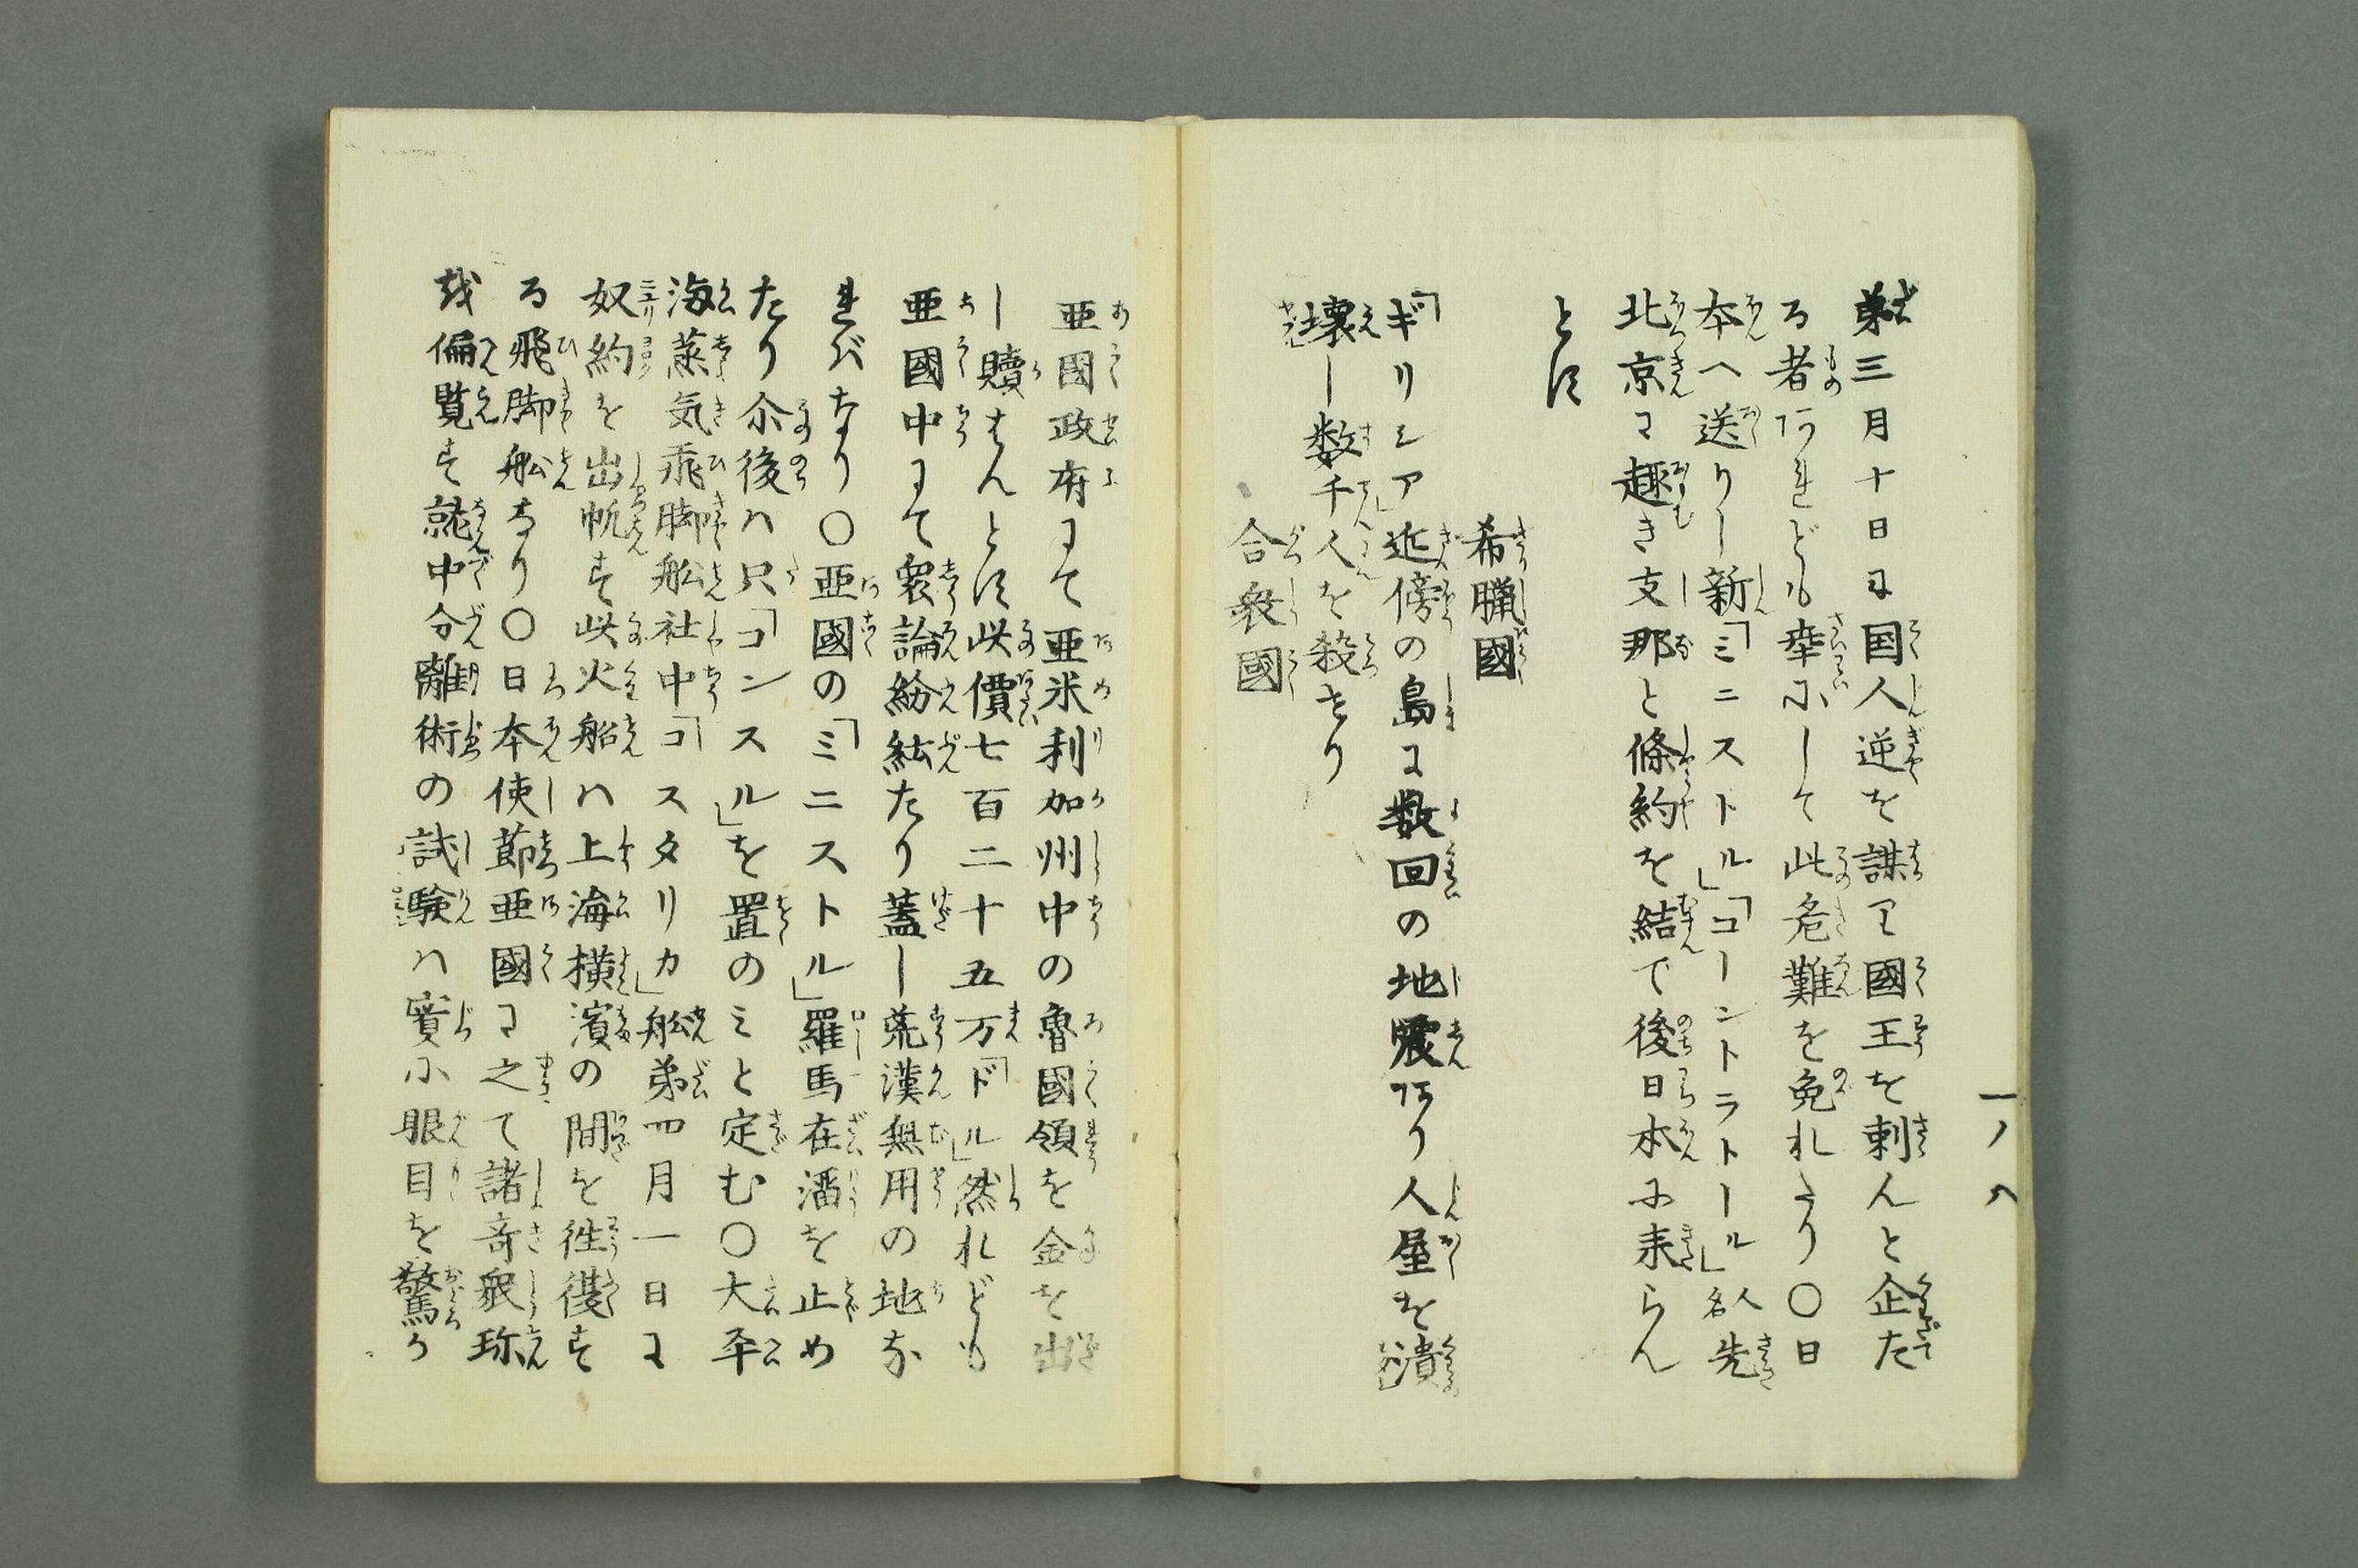 第三月十日に国人逆を謀り國王を刺んと企た
る者あれども幸にして此危難を免れたり〇日
本へ送りし新「ミニストル」「コーントラトール」人名先
北京に趣き支那と條約を結で後日本に来らん
とす
希臘國
「ギリシア」近傍の島に数回の地震あり人屋を潰
壊し数千人を殺せり
合衆國
亜國政府にて亜米利加州中の魯國領を金を出
し贖はんとす此價七百二十五万「ドル」然れども
亜國中にて衆論紛紜たり蓋し荒漠無用の地な
ればなり〇亜國の「ミニストル」羅馬在留を止め
たり尒後ハ只「コンスル」を置のミと定む〇大平
海蒸気飛脚舩社中「コスタリカ」舩第四月一日に
奴約を出帆す此火船ハ上海横濱の間を徃復す
る飛脚舩なり〇日本使節亜國に之て諸奇衆珎
を偏覧す就中分離術の試験ハ實に眼目を驚か